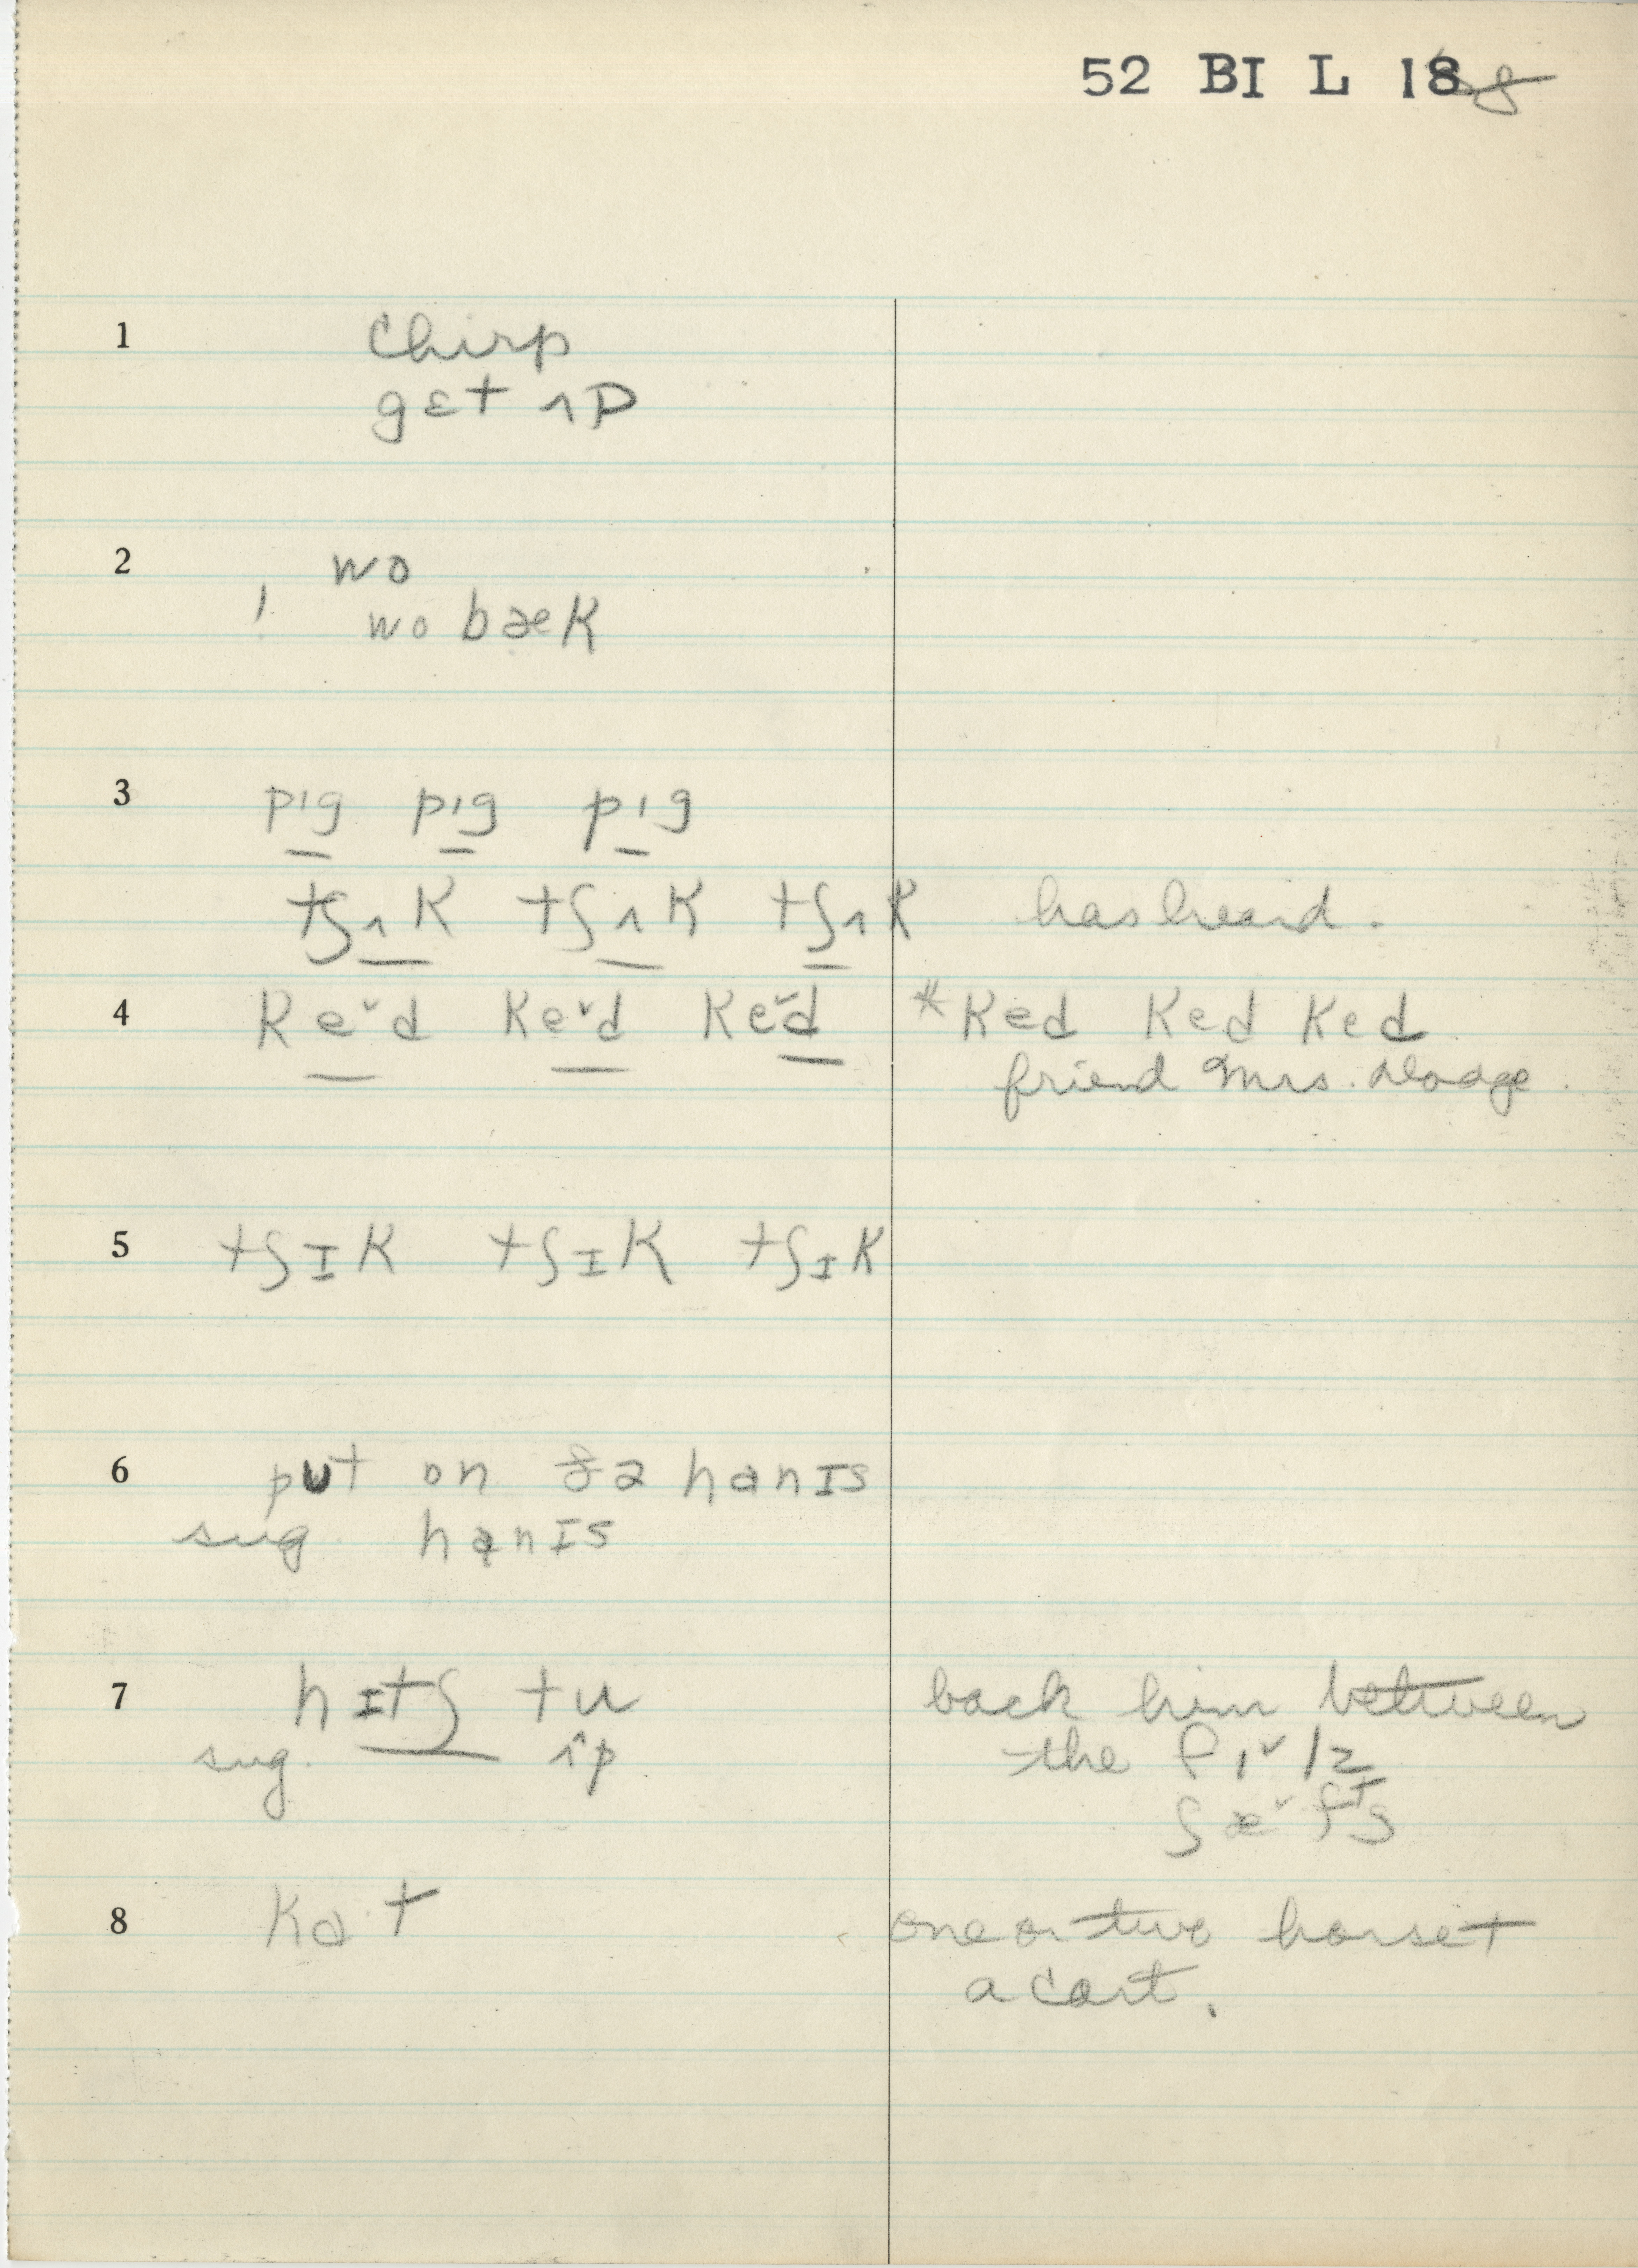 52 BI L 18
1 Chirp
gɛt ʌp
2 wo
! wo bæk
3 pɪg pɪg pɪg
tʃʌk tʃʌk tʃʌk has heard.
4 keˇd keˇd keˇd *ked ked ked
friend Mrs. Dodge.
5 tʃɪk tʃɪk tʃɪk
6 pʊt on ðə hanɪs
sug hanɪs
7 hɪtʃ tu back him between
sug. ʌp the
8 kat one or two horse
a cart.